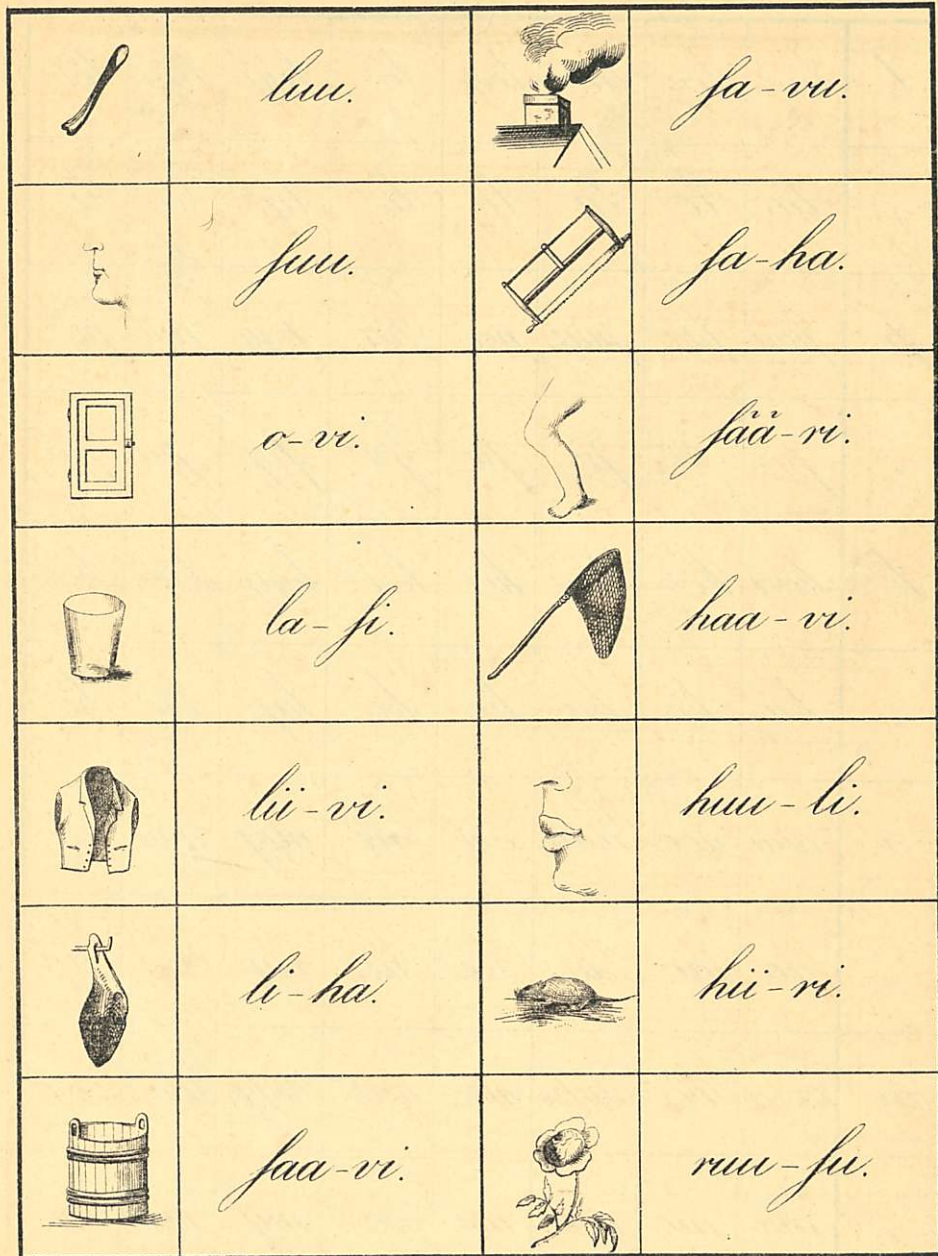 luu.
ſa-vu.
ſuu.
ſa-ha.
o-vi.
ſää-ri.
la-ſi.
haa-vi.
lii-vi.
huu-li.
li-ha.
hii-ri.
ſaa-vi.
ruu-ſu.